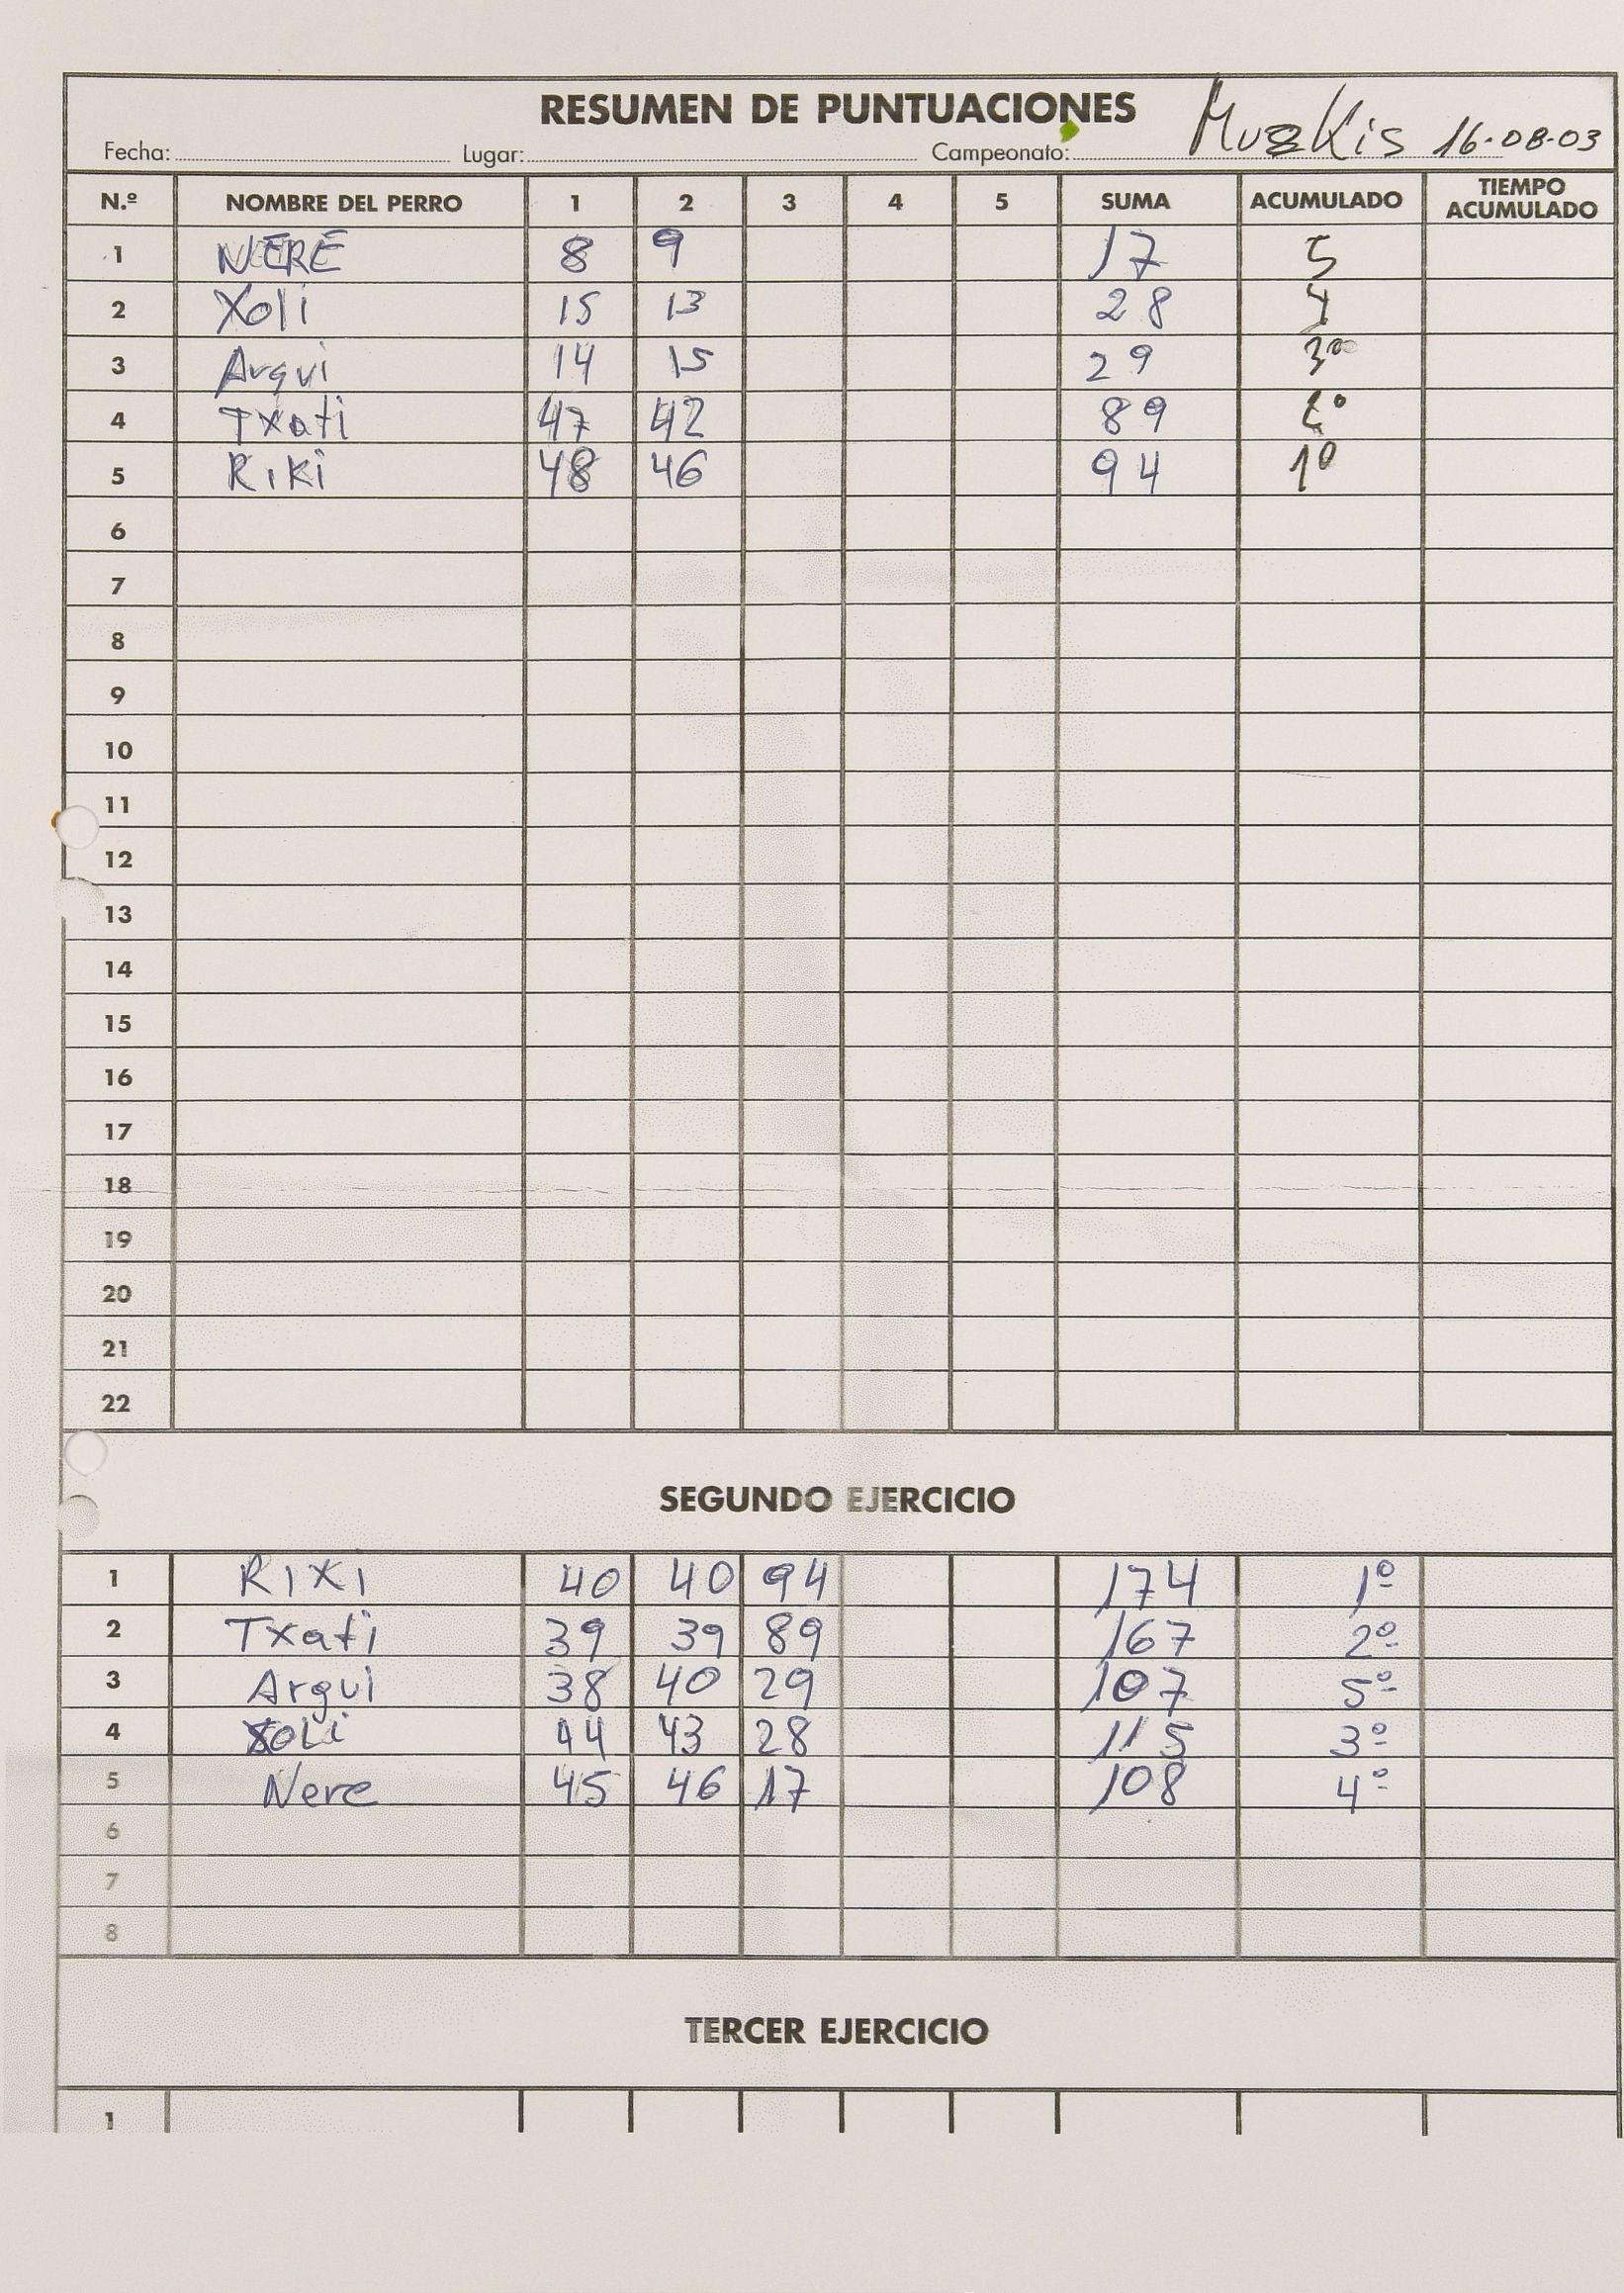 RESUMEN DE PUNTUACIONES
Fecha: Lugar: Campeonato: Muskis 16-08-03
N.º NOMBRE DEL PERRO 1 2 3 4 5 SUMA ACUMULADO TIEMPO ACUMULADO
1 NERE 8 9 17 5
2 Xoli 15 13 28 4
3 Argui 14 15 29 3º
4 Txati 47 42 89 2º
5 RiKi 48 46 94 1º
6
7
8
9
10
11
12
13
14
15
16
17
18
19
20
21
22
SEGUNDO EJERCICIO
1 RIXI 40 40 94 174 1º
2 Txati 39 39 89 167 2º
3 Argui 38 40 29 107 5º
4 XOLi 44 43 28 115 3º
5 Nere 45 46 17 108 4º
6
7
8
TERCER EJERCICIO
1